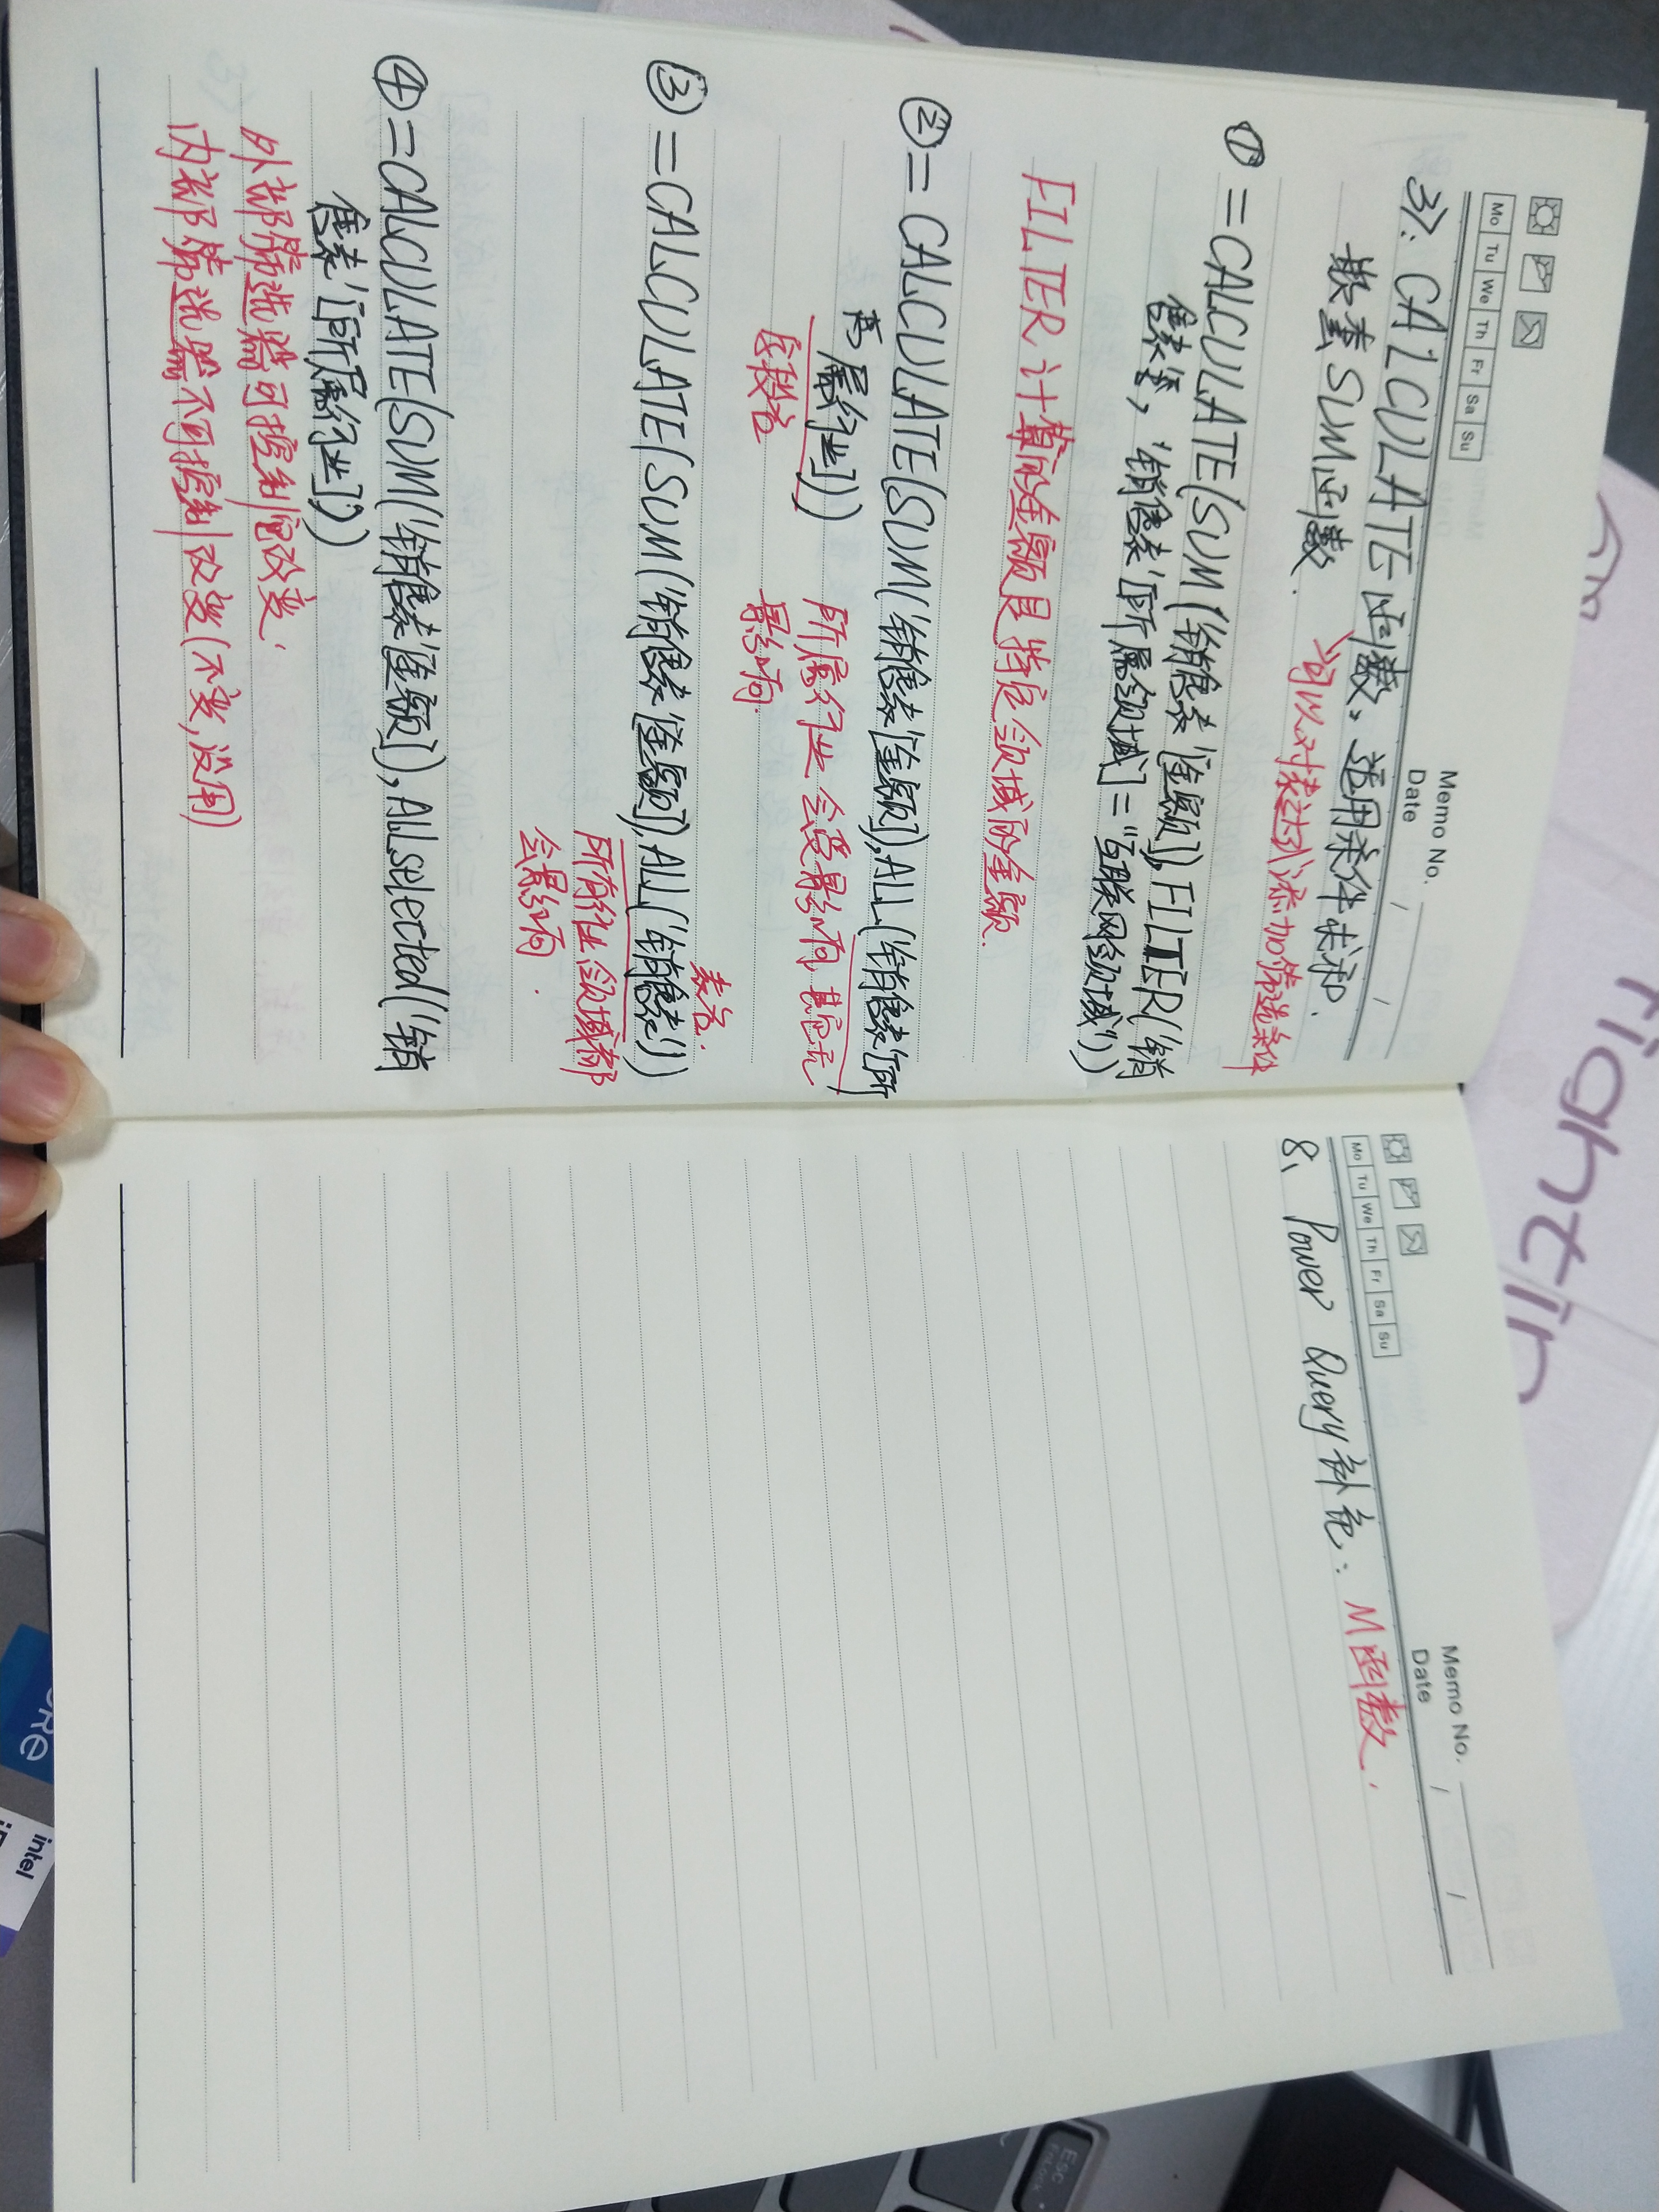 Memo No.
Mo Tu We Th Fr Sa Su
Date / /
3>: CALCULATE函数。适用条件求和.
嵌套SUM函数. 可以对表达式添加筛选条件
① =CALCULATE(SUM('销售表'[金额]),FILTER('销
售表', '销售表'[所属领域]="互联网领域"))
FILTER计算的金额是特定领域的金额.
② = CALCULATE(SUM('销售表'[金额]),ALL('销售表'[所
属行业]))
字段名
所属行业会受影响,其它无
影响.
③ =CALCULATE(SUM('销售表'[金额]),ALL('销售表'))
表名.
所有行业领域都
会影响.
④=CALCULATE(SUM('销售表'[金额]),ALLselected('销
售表'[所属行业]))
外部筛选器可控制它改变.
内部筛选器不可控制改变(不变,没用)
Memo No.
Mo Tu We Th Fr Sa Su
Date / /
8、Power Query补充: M函数.
fightin
CORE
intel
Esc
FnLock